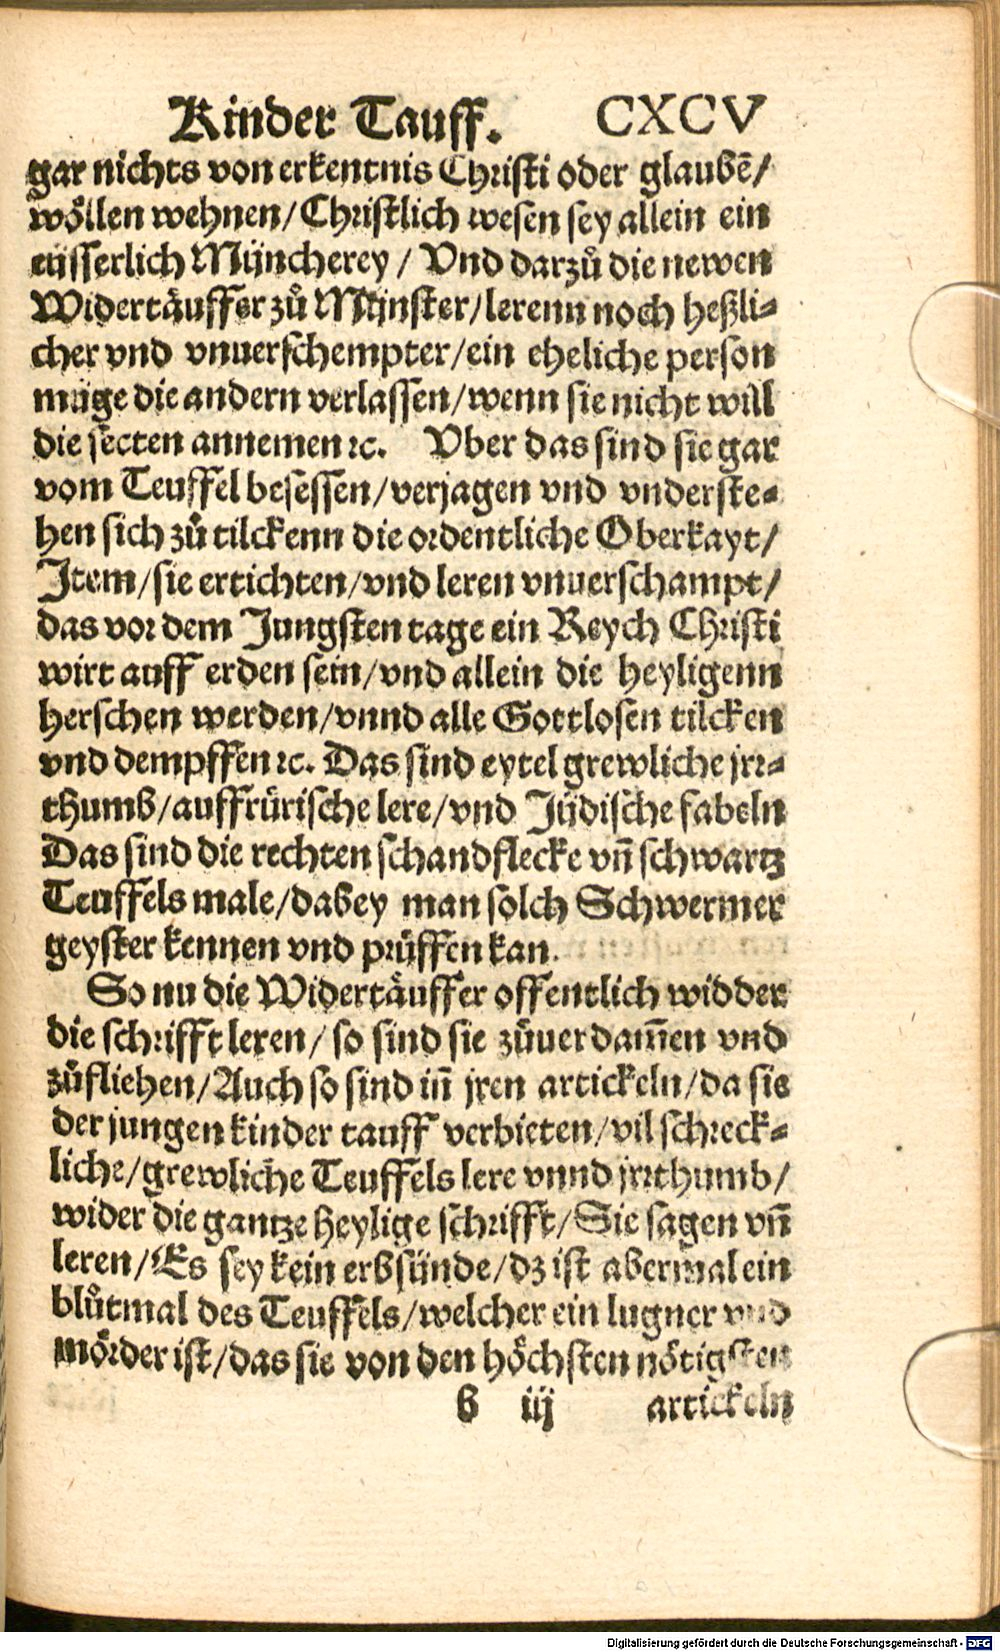 Kinder Tauff. CXCV
gar nichts von erkentnis Christi oder glaubē/
wöllen wehnen/Christlich wesen sey allein ein
eüsserlich Müncherey / Vnd darzů die newen
Widertäuffer zů Münster/lerenn noch heßli-
cher vnd vnuerschempter/ein eheliche person
müge die andern verlassen/wenn sie nicht will
die secten annemen ꝛc. Vber das sind sie gar
vom Teuffel besessen/verjagen vnd vnderste-
hen sich zů tilckenn die ordentliche Oberkayt/
Item/sie ertichten/vnd leren vnuerschampt/
das vor dem Jungsten tage ein Reych Christi
wirt auff erden sein/vnd allein die heyligenn
herschen werden/vnnd alle Gottlosen tilcken
vnd dempffen ꝛc. Das sind eytel grewliche jrr-
thumb/auffrürische lere/vnd Jüdische fabeln
Das sind die rechten schandflecke vñ schwartz
Teuffels male/dabey man solch Schwermer
geyster kennen vnd prüffen kan.
So nu die Widertäuffer offentlich widder
die schrifft leren/ so sind sie zůuerdam̄en vnd
zůfliehen/Auch so sind in̄ jren artickeln/da sie
der jungen kinder tauff verbieten/vil schreck-
liche/grewliche Teuffels lere vnnd jrrthumb/
wider die gantze heylige schrifft/Sie sagen vñ
leren/Es sey kein erbsünde/dz ist abermal ein
blůtmal des Teuffels/welcher ein lugner vnd
mörder ist/das sie von den höchsten nötigsten
b iij artickeln
Digitalisierung gefördert durch die Deutsche Forschungsgemeinschaft - DFG